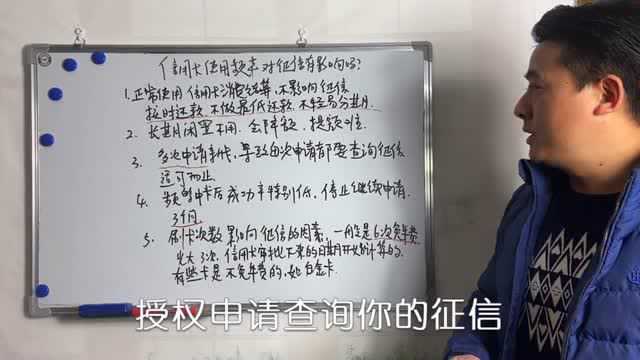 信用卡使用频率对征信有影响吗?
1. 正常使用信用卡消费结算,不影响征信
按时还款 不做最低还款 不轻易分期.
2. 长期闲置不用. 会降额,提额难.
3. 多次申请
申请都要查询征信
适可而止
4. 频繁申卡后成功率特别低,停止继续申请.
3个月
5. 刷卡次数影响征信的因素,一般是6次免年费
光大3次,信用卡审批下来的日期开始计算的.
有些卡是不免年费的,如白金卡.
授权申请查询你的征信